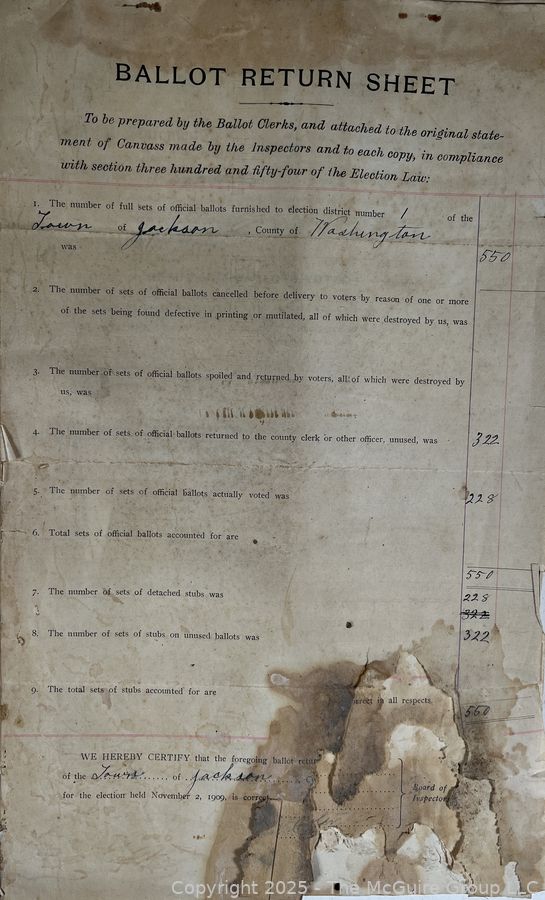 BALLOT RETURN SHEET
To be prepared by the Ballot Clerks, and attached to the original state-
ment of Canvass made by the Inspectors and to each copy, in compliance
with section three hundred and fifty-four of the Election Law:
1. The number of full sets of official ballots furnished to election district number 1 of the
Town of Jackson, County of Washington
was 550
2. The number of sets of official ballots cancelled before delivery to voters by reason of one or more
of the sets being found defective in printing or mutilated, all of which were destroyed by us, was
3. The number of sets of official ballots spoiled and returned by voters, all of which were destroyed by
us, was
4. The number of sets of official ballots returned to the county clerk or other officer, unused, was 322
5. The number of sets of official ballots actually voted was 228
6. Total sets of official ballots accounted for are
550
7. The number of sets of detached stubs was 228
322
8. The number of sets of stubs on unused ballots was 322
9. The total sets of stubs accounted for are
in all respects.
550
WE HEREBY CERTIFY that the foregoing ballot
of the Town of Jackson
for the election held November 2, 1909, is correct
Board of
Inspectors
Copyright 2025 - The McGuire Group LLC